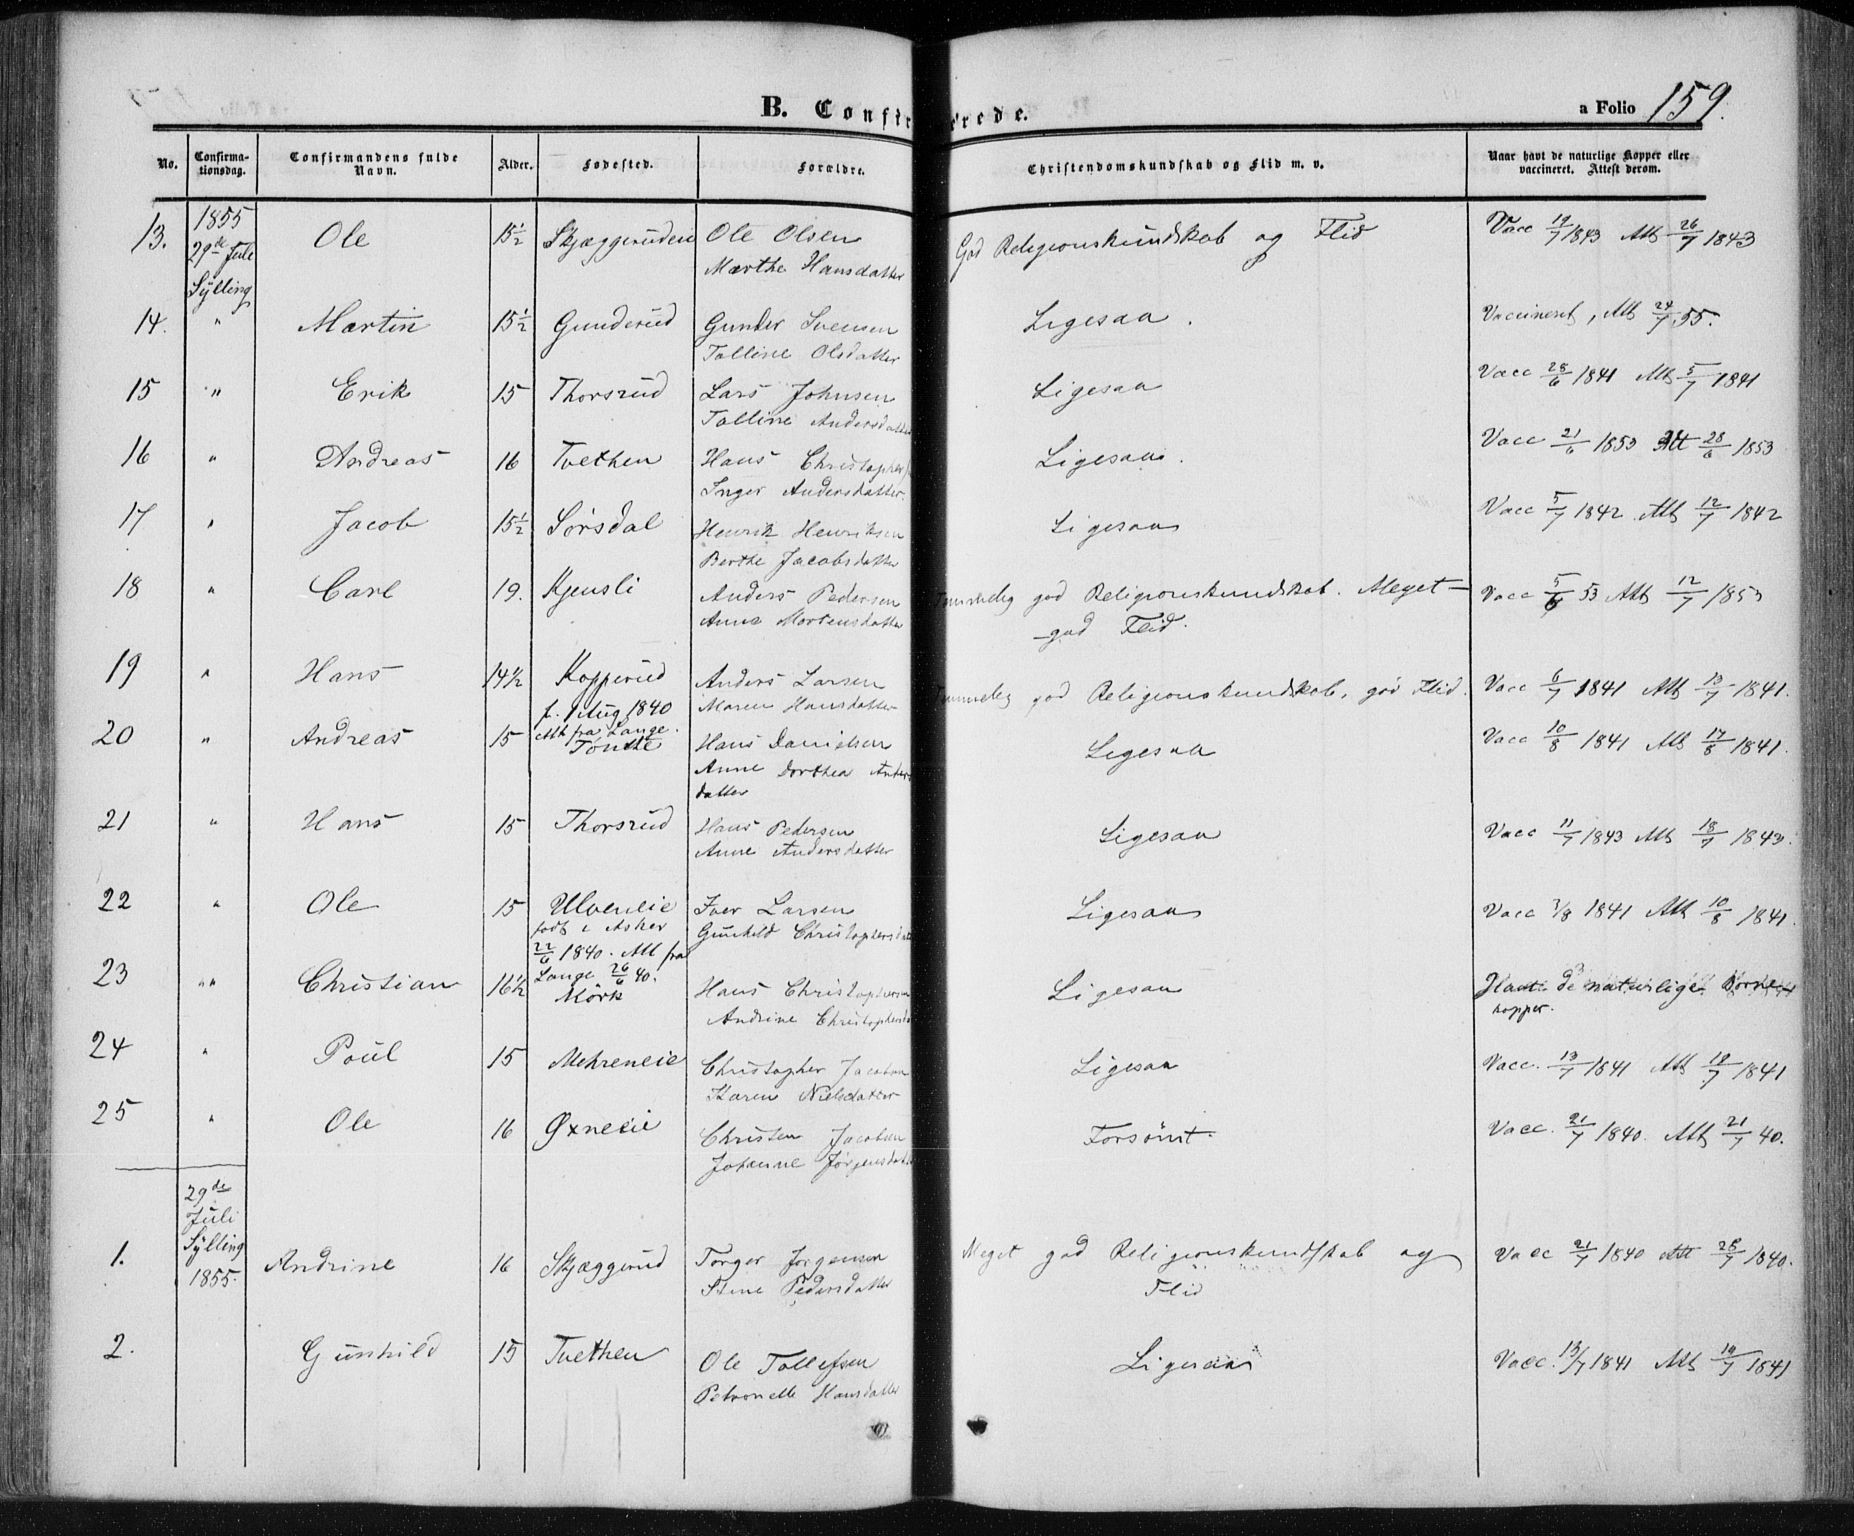 B. Confirmerede.
a Folio 159.
No. Confirmationsdag. Confirmandens fulde Navn. Alder. Fødested. Forældre. Christendomskundskab og Flid m. v. Naar havt de naturlige Kopper eller vaccineret. Attest derom.
13. 1855 29de Juli Sylling Ole 15½ Skjæggeruden Ole Olsen God Religionskundskab og Flid Vacc 19/7 1843 Att 26/7 1843
Marthe Hansdatter
14. " Martin 15½ Gunderud Gunder Svensen Ligesaa. Vaccineret, Att 24/7 55.
Talline Olsdatter
15 " Erik 15 Thorsrud Lars Johnsen Ligesaa Vacc 28/6 1841 Att 5/7 1841
Talline Andersdatter
16 " Andreas 16 Tvethen Hans Christophersen Ligesaa. Vacc 21/6 1853 Att 28/6 1853
Inger Andersdatter
17 " Jacob 15½ Sørsdal Henrik Henriksen Ligesaa Vacc 5/7 1842 Att 12/7 1842
Berthe Jacobsdatter
18 " Carl 19. Kjensli Anders Pedersen Temmelig god Religionskundskab. Meget Vacc 5/6 53 Att 12/7 1853
Anne Mortensdatter god Flid.
19 " Hans 14½ Kopperud Anders Larsen Temmelig god Religionskundskab, god Flid. Vacc 6/7 1841 Att 13/7 1841.
f. 1 Aug 1840 Maren Hansdatter
Att fra Lange.
20 " Andreas 15 Tønete Hans Danielsen Ligesaa Vacc 10/8 1841 Att 17/8 1841.
Anne Dorthea Anders
datter
21 " Hans 15 Thorsrud Hans Pedersen Ligesaa Vacc 11/7 1843 Att 18/7 1843.
Anne Andersdatter
22 " Ole 15 Ulveneie Iver Larsen Ligesaa Vacc 3/8 1841 Att 10/8 1841.
født i Asker Gunhild Christophersdatter
22/6 1840. Att fra
Lange 26/6 40.
23 " Christian 16½ Mörk Hans Christophersen Ligesaa Havt de naturlige Børne-
kopper.
Andrine Christophersd
24 " Poul 15 Mehreneie Christopher Jacobsen Ligesaa Vacc. 13/7 1841 Att 19/7 1841
Karen Nielsdatter
25 " Ole 16 Øxneeie Christen Jacobsen Forsømt. Vacc. 21/7 1840. Att 21/7 40.
Johanne Jörgensdatter
1. 29de Juli Sylling 1855. Andrine 16 Skjæggerud Torger Jorgensen Meget god Religionskundskab og Vacc 21/7 1840 Att 28/7 1840.
Stine Pedersdatter Flid
2. Gunhild 15 Tvethen Ole Tollefsen Ligesaa Vacc. 13/7 1841 Att 19/7 1841
Petronelle Hansdatter